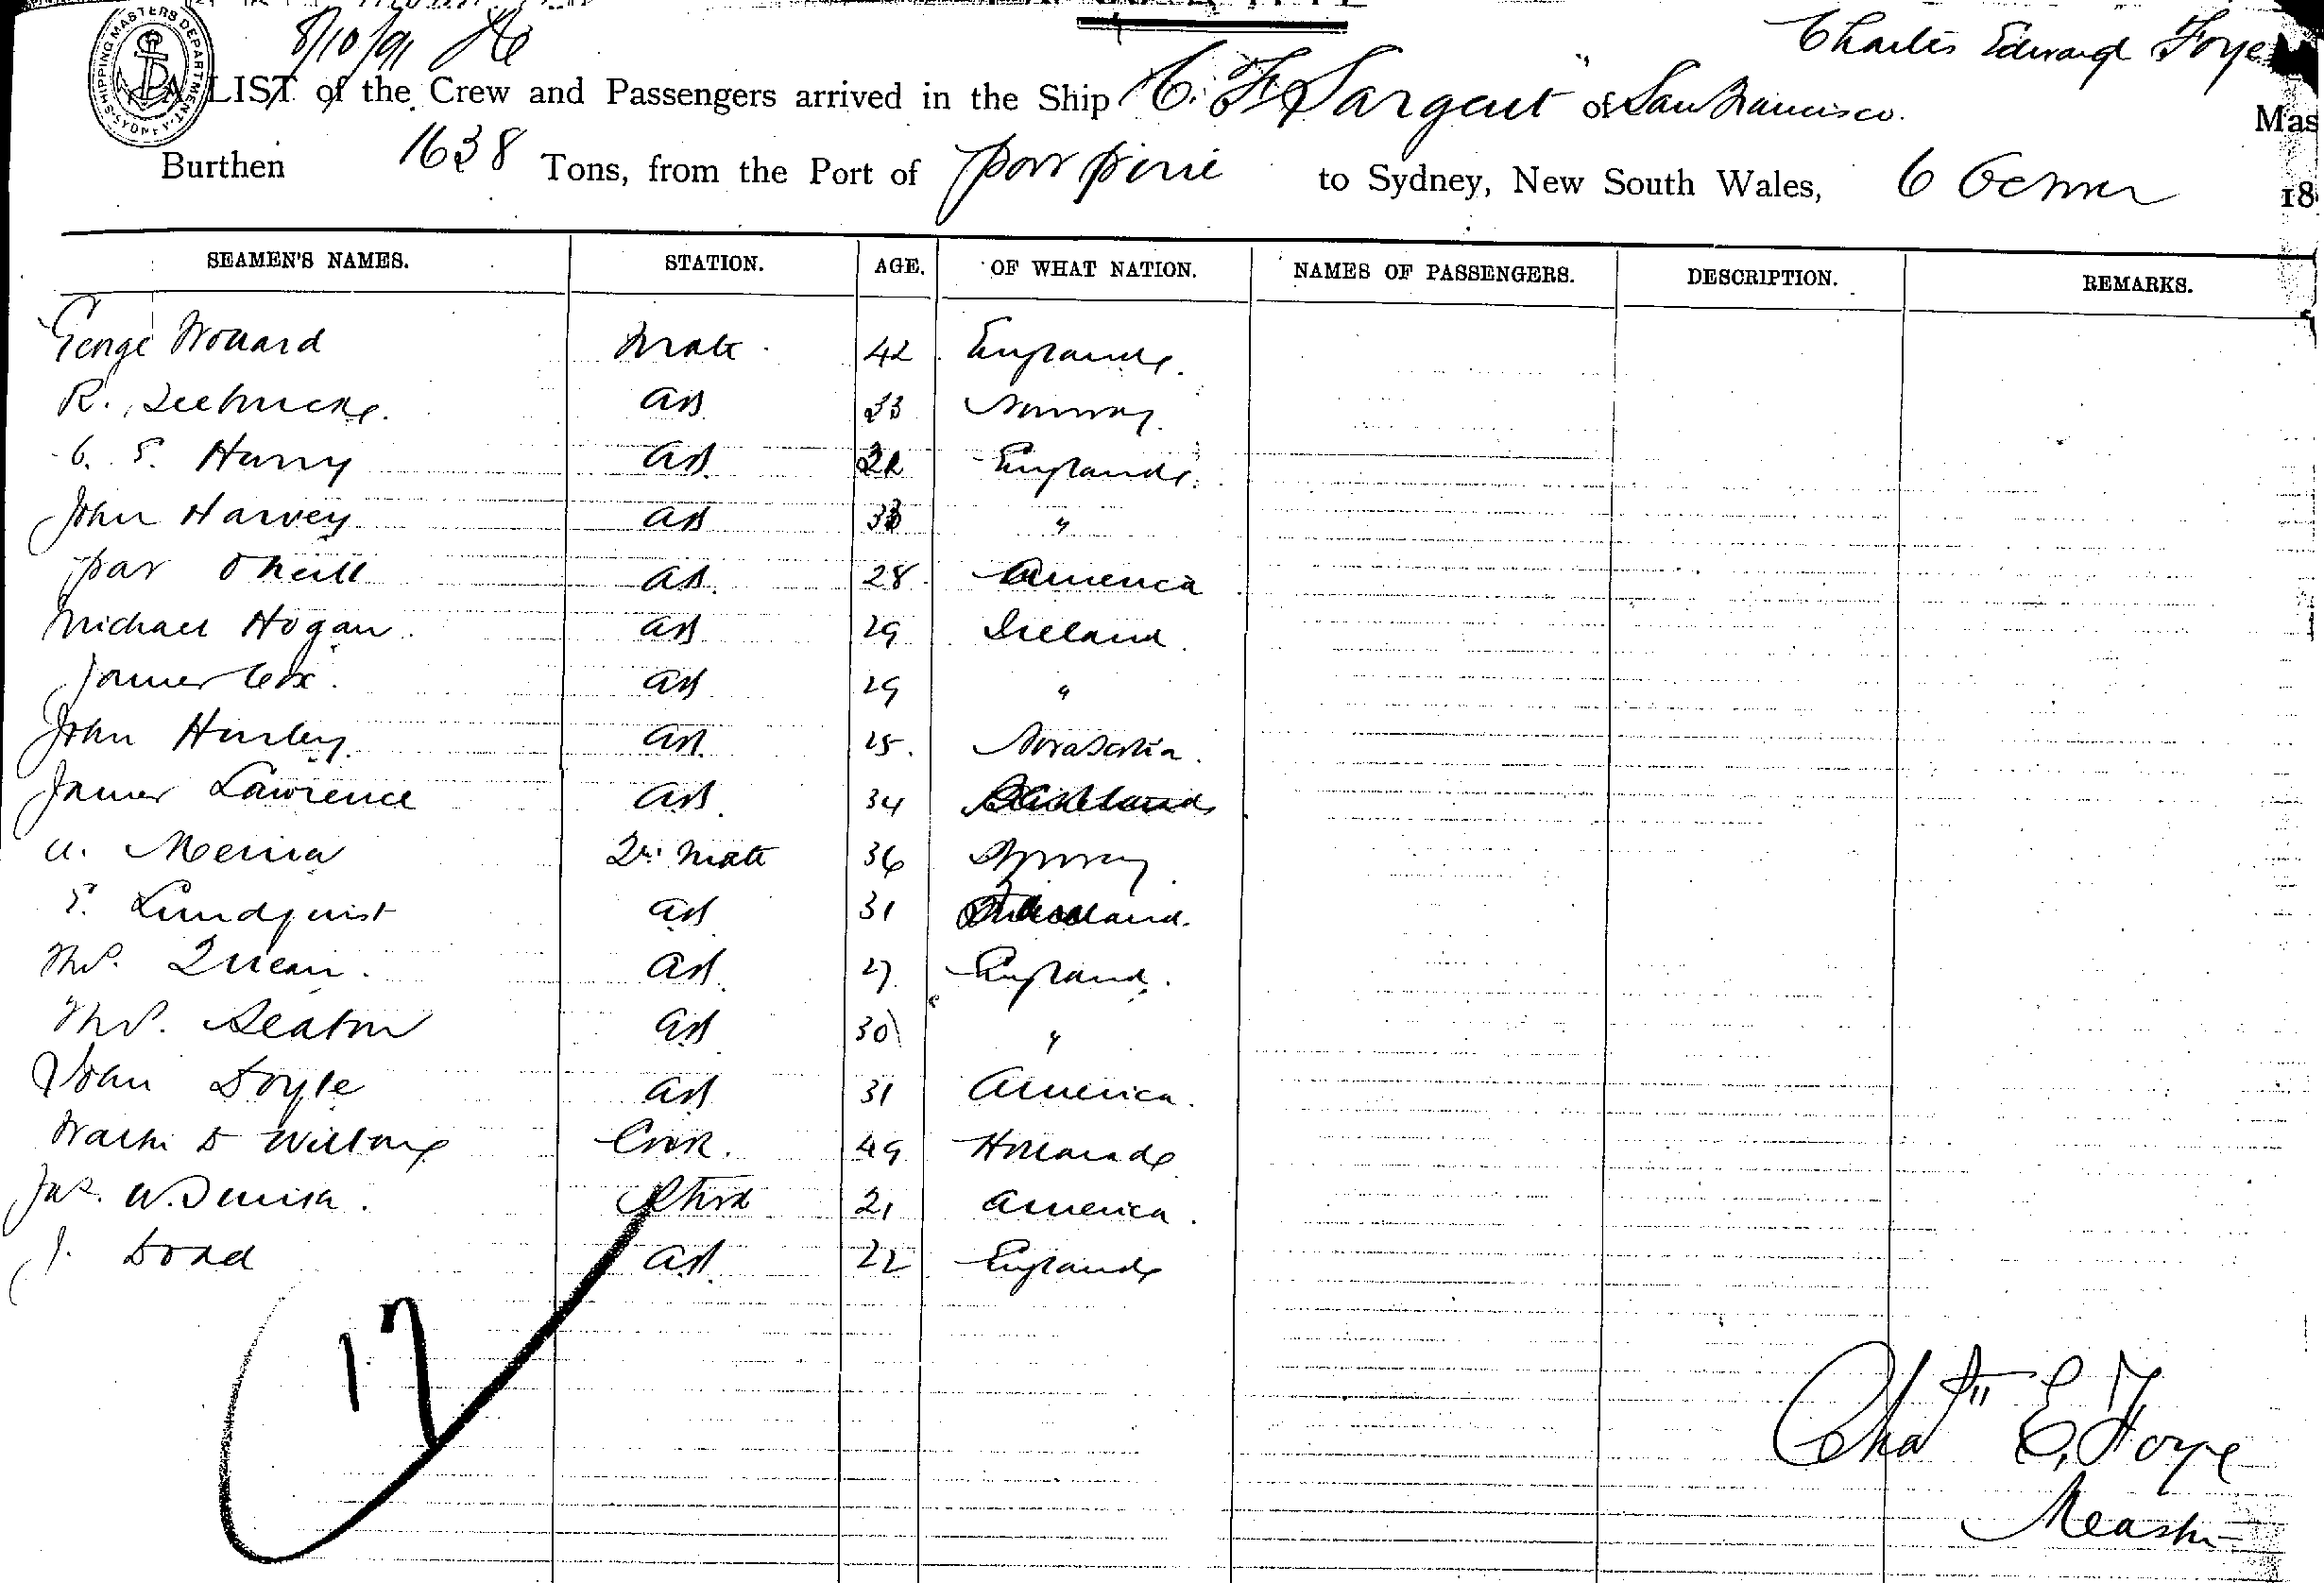 SHIPPING MASTERS DEPARTMENT SYDNEY
8/10/91
Charles Edward Foye
A LIST of the Crew and Passengers arrived in the Ship "C. F. Sargent" of San Francisco. Mas
Burthen 1638 Tons, from the Port of Port Pirie to Sydney, New South Wales, 6 October 18
SEAMEN'S NAMES. STATION. AGE. OF WHAT NATION. NAMES OF PASSENGERS. DESCRIPTION. REMARKS.
George Mate 42 England.
R. AB 23 Norway.
C. E. Harry AB England.
John Harvey AB 33 "
Pat O'Neill AB 28 America
Michael Hogan AB 29 Ireland
James Cox. AB 29 "
John Hurley AB 25. Nova Scotia.
James Lawrence AB 34
2nd Mate 36 Norway.
E. Lundquist AB 31
Thos. AB 27 England.
Thos. Seaton AB 30 "
John Doyle AB 31 America.
D Cook. 49 Holland
Jas. W. Stwd 21 America.
J. Dodd AB 22 England
17
Chas E. Foye
Master